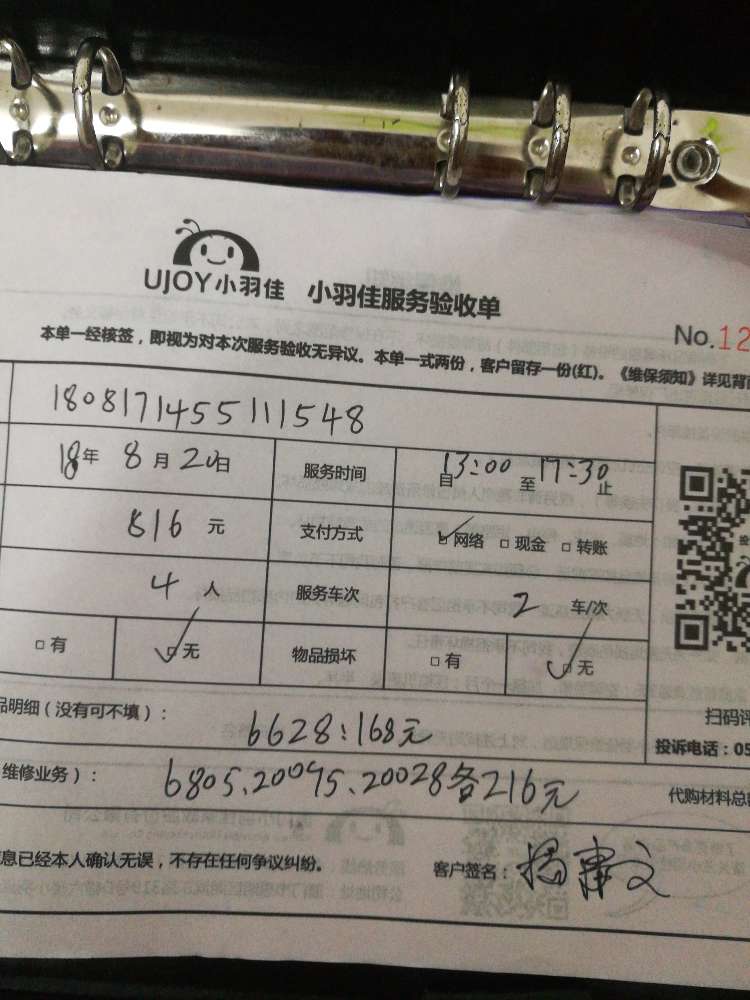 UJOY小羽佳 小羽佳服务验收单
No.12
本单一经核签，即视为对本次服务验收无异议。本单一式两份，客户留存一份(红)。《维保须知》详见背面
1808171455111548
18年 8月20日 服务时间 自13:00至17:30止
816元 支付方式 ☑网络 □现金 □转账
4人 服务车次 2 车/次
□有 ☑无 物品损坏 □有 ☑无
扫码评
品明细（没有可不填）： 6628:168元
投诉电话：05
维修业务）： 6805、20095、20028各216元
代购材料总
息已经本人确认无误，不存在任何争议纠纷。 客户签名：